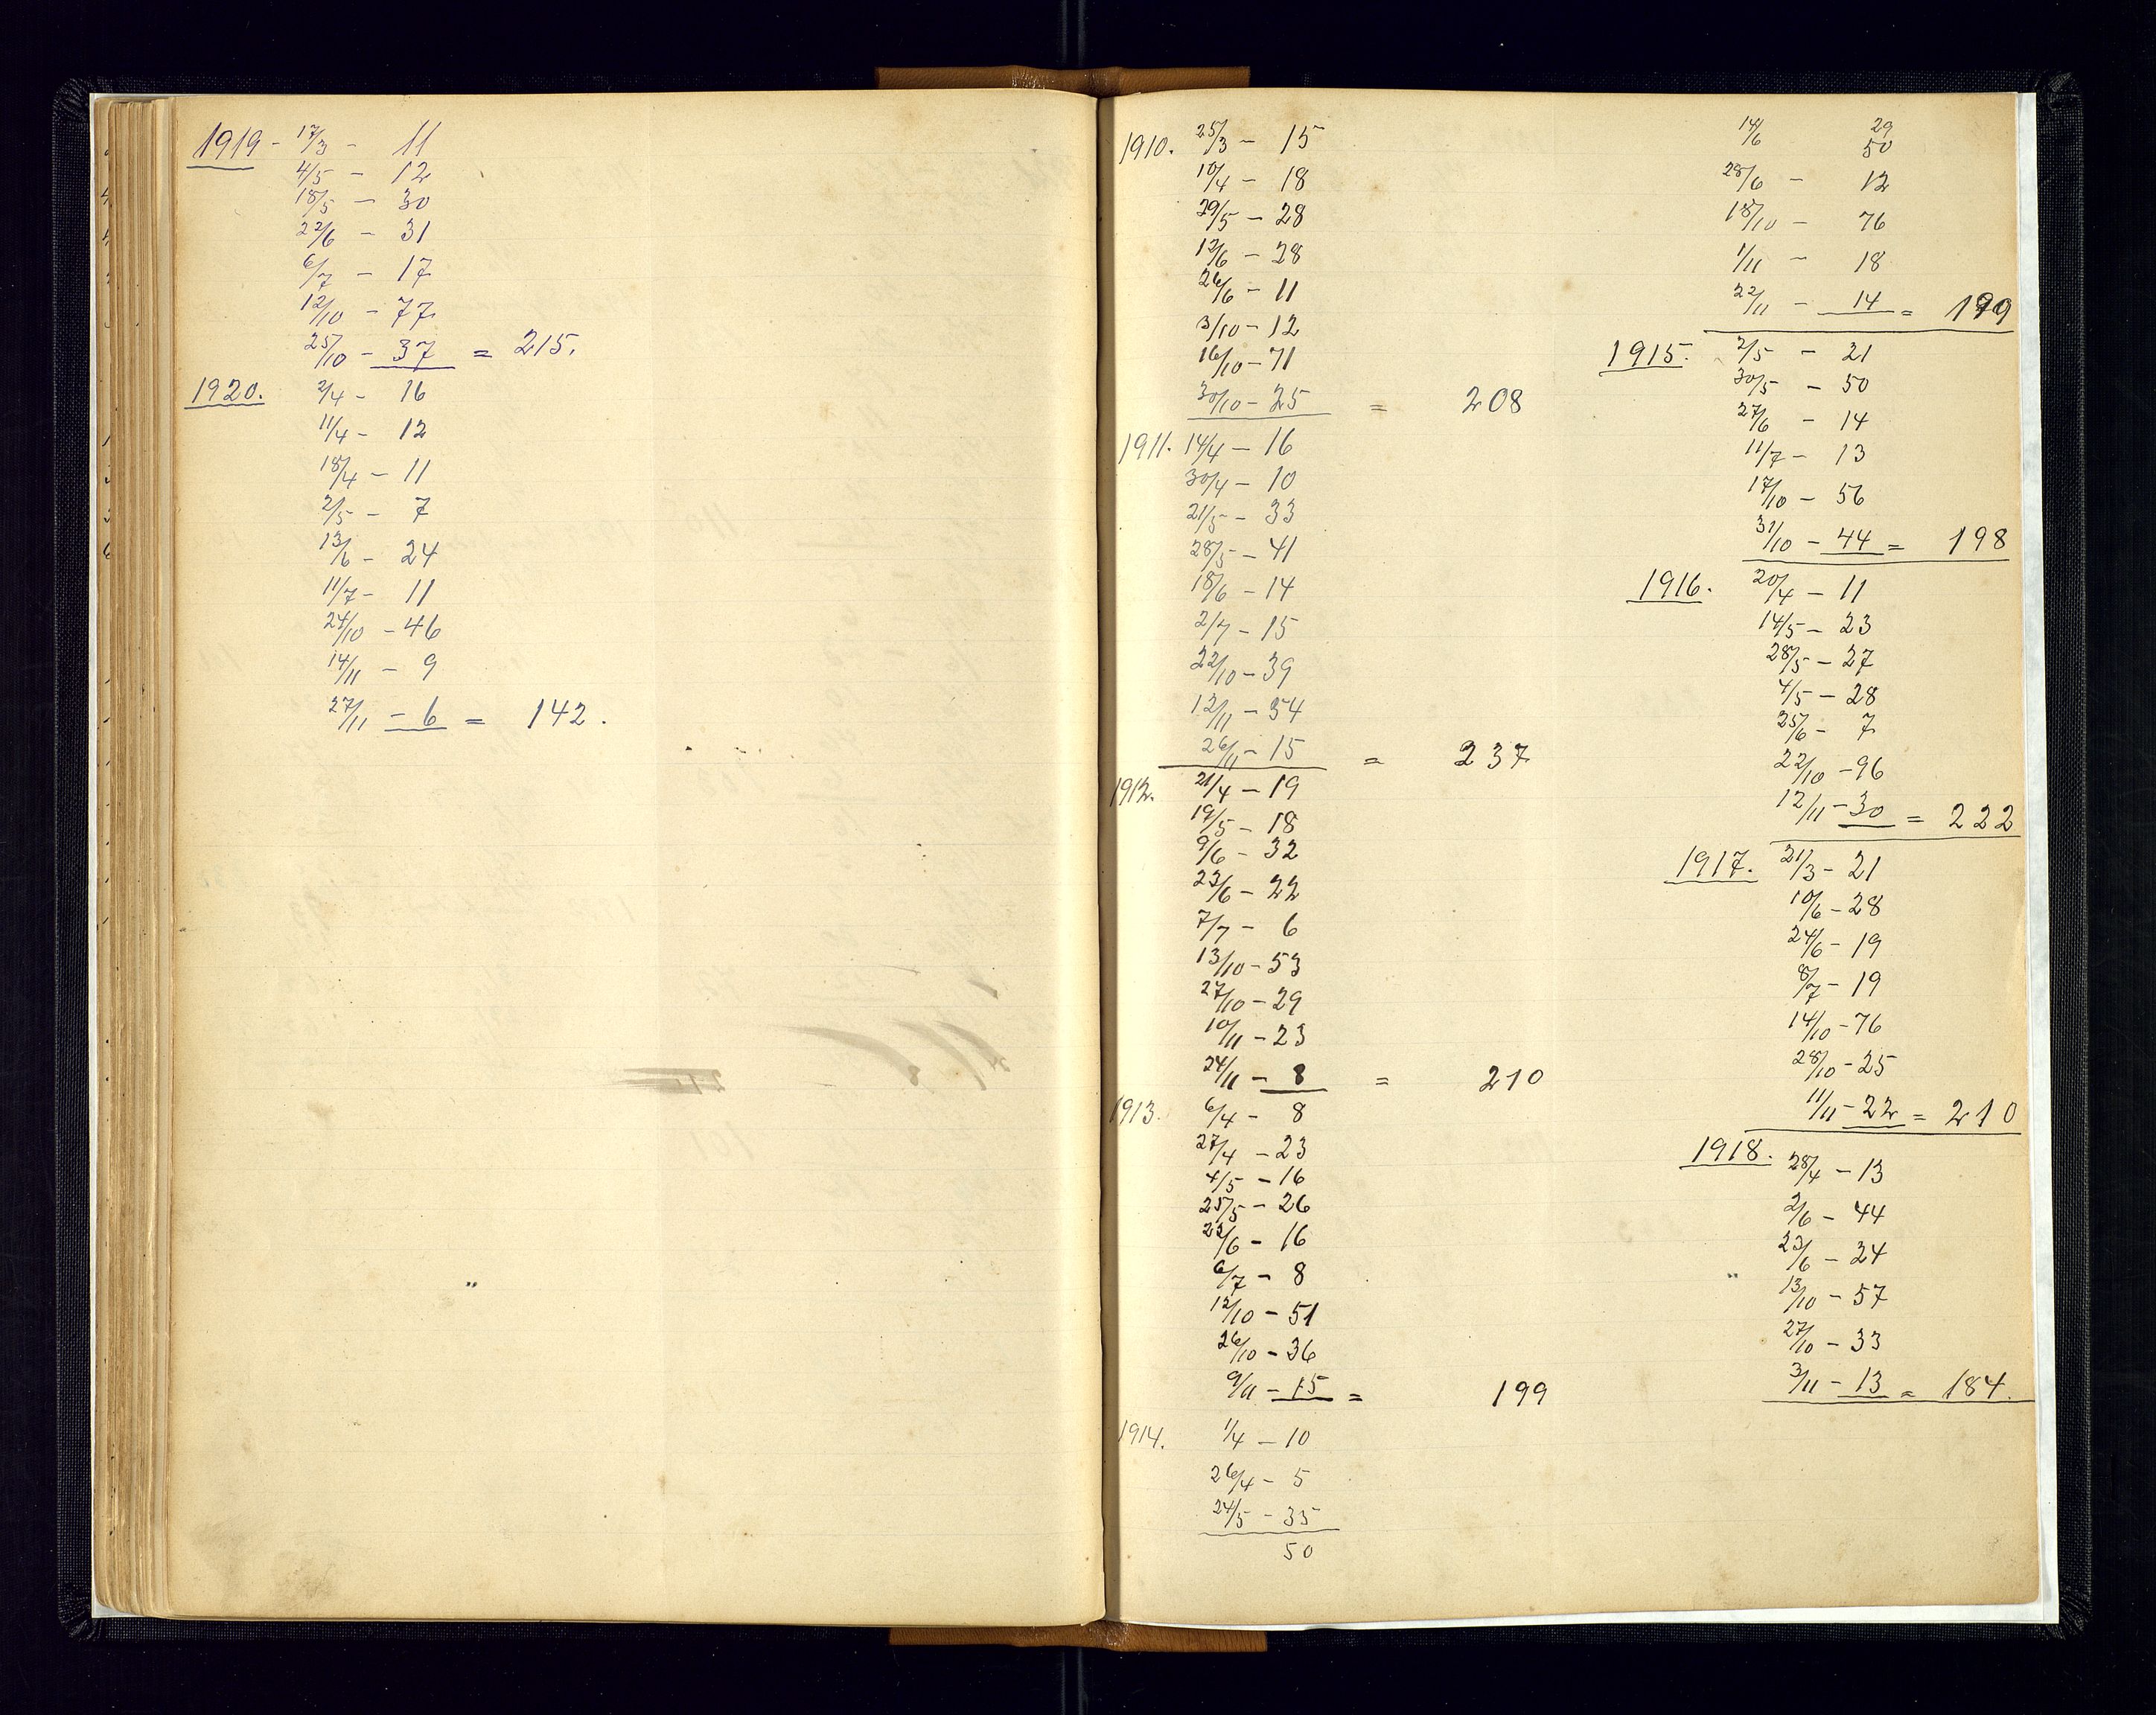 1919 - 17/3 - 11
4/5 - 12
18/5 - 30
22/6 - 31
6/7 - 17
12/10 - 77
25/10 - 37 = 215.
1920. 2/4 - 16
11/4 - 12
18/4 - 11
2/5 - 7
13/6 - 24
11/7 - 11
24/10 - 46
14/11 - 9
27/11 - 6 = 142.
1910. 25/3 - 15
10/4 - 18
29/5 - 28
12/6 - 28
26/6 - 11
3/10 - 12
16/10 - 71
30/10 - 25 = 208
1911. 14/4 - 16
30/4 - 10
21/5 - 33
28/5 - 41
18/6 - 14
2/7 - 15
22/10 - 39
12/11 - 54
26/11 - 15 = 237
1912. 21/4 - 19
19/5 - 18
9/6 - 32
23/6 - 22
7/7 - 6
13/10 - 53
27/10 - 29
10/11 - 23
24/11 - 8 = 210
1913. 6/4 - 8
27/4 - 23
4/5 - 16
25/5 - 26
22/6 - 16
6/7 - 8
12/10 - 51
26/10 - 36
9/11 - 15 = 199
1914. 1/4 - 10
26/4 - 5
24/5 - 35
50
14/6 29
50
28/6 - 12
18/10 - 76
1/11 - 18
22/11 - 14 = 199
1915. 2/5 - 21
30/5 - 50
27/6 - 14
11/7 - 13
17/10 - 56
31/10 - 44 = 198
1916. 20/4 - 11
14/5 - 23
28/5 - 27
4/5 - 28
25/6 - 7
22/10 - 96
12/11 - 30 = 222
1917. 21/3 - 21
10/6 - 28
24/6 - 19
8/7 - 19
14/10 - 76
28/10 - 25
11/11 - 22 = 210
1918. 28/4 - 13
2/6 - 44
23/6 - 24
13/10 - 57
27/10 - 33
3/11 - 13 = 184.